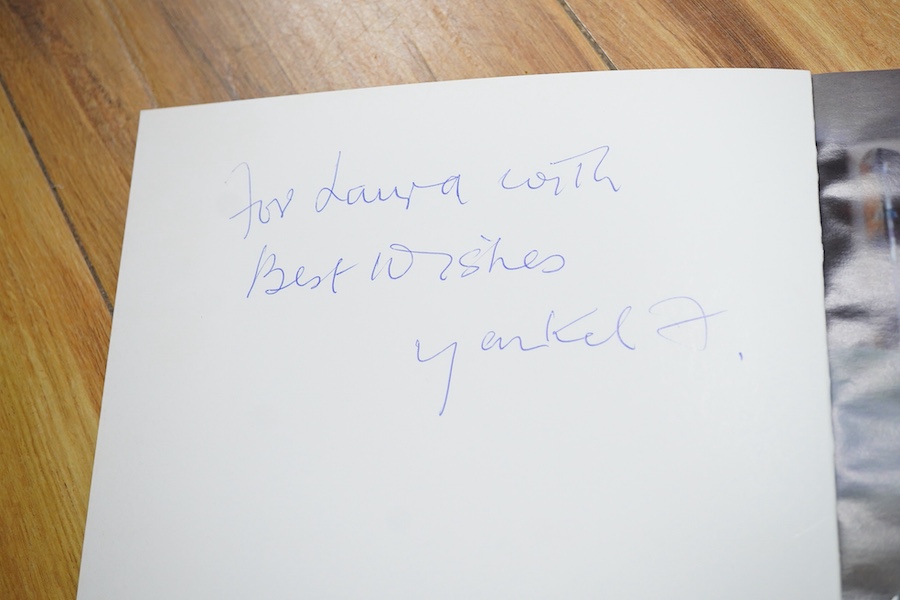 For Laura with
Best Wishes
Yankel F.